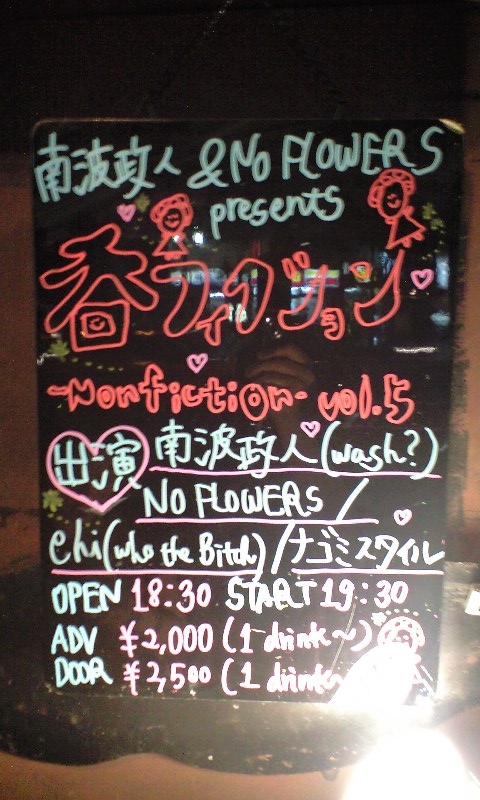 南波政人 & NO FLOWERS
presents
春フィクション
-Nonfiction- vol.5
出演 南波政人(wash?)
NO FLOWERS /
ehi(who the Bitch) / ナゴミスタイル
OPEN 18:30 START 19:30
ADV ¥2,000 (1 drink~)
DOOR ¥2,500 (1 drink~